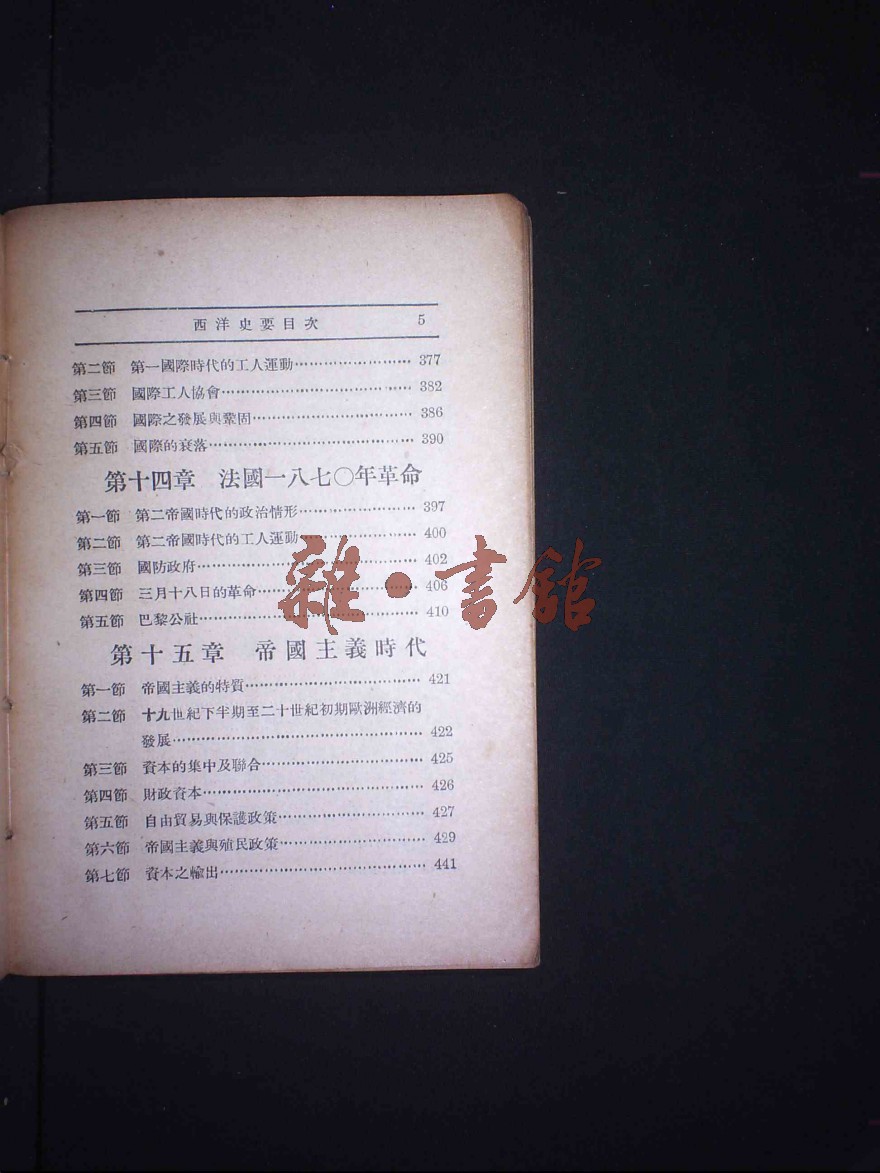 西洋史要目次 5
第二節 第一國際時代的工人運動……………………… 377
第三節 國際工人協會……………………… 382
第四節 國際之發展與鞏固……………………… 386
第五節 國際的衰落……………………… 390
第十四章 法國一八七〇年革命
第一節 第二帝國時代的政治情形……………………… 397
第二節 第二帝國時代的工人運動……………………… 400
第三節 國防政府……………………… 402
第四節 三月十八日的革命……………………… 406
第五節 巴黎公社……………………… 410
雜•書館
第十五章 帝國主義時代
第一節 帝國主義的特質……………………… 421
第二節 十九世紀下半期至二十世紀初期歐洲經濟的
發展……………………… 422
第三節 資本的集中及聯合……………………… 425
第四節 財政資本……………………… 426
第五節 自由貿易與保護政策……………………… 427
第六節 帝國主義與殖民政策……………………… 429
第七節 資本之輸出……………………… 441